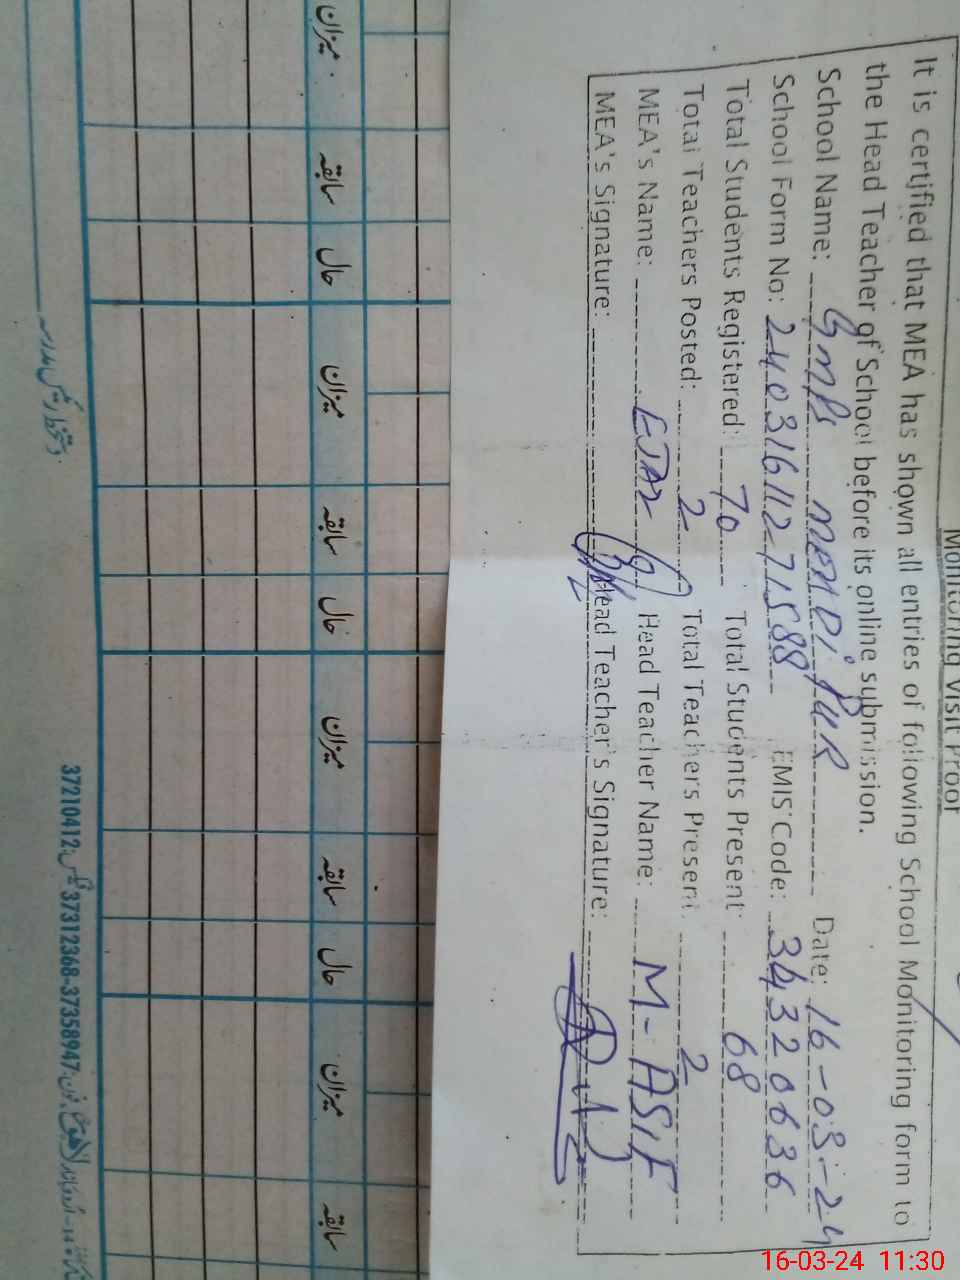 Monitoring Visit Proof
It is certified that MEA has shown all entries of following School Monitoring form to
the Head Teacher of School before its online submission.
School Name: GMPS MEHDI PUR Date: 16-03-24
School Form No: 240316112271588 EMIS Code: 34320636
Total Students Registered: 70 Total Students Present: 68
Total Teachers Posted: 2 Total Teachers Present: 2
MEA's Name: EJAZ Head Teacher Name: M-ASIF
MEA's Signature: Head Teacher's Signature:
میزان سابقہ حال میزان سابقہ حال میزان سابقہ حال میزان سابقہ
37210412 37312368-37358947
16-03-24 11:30